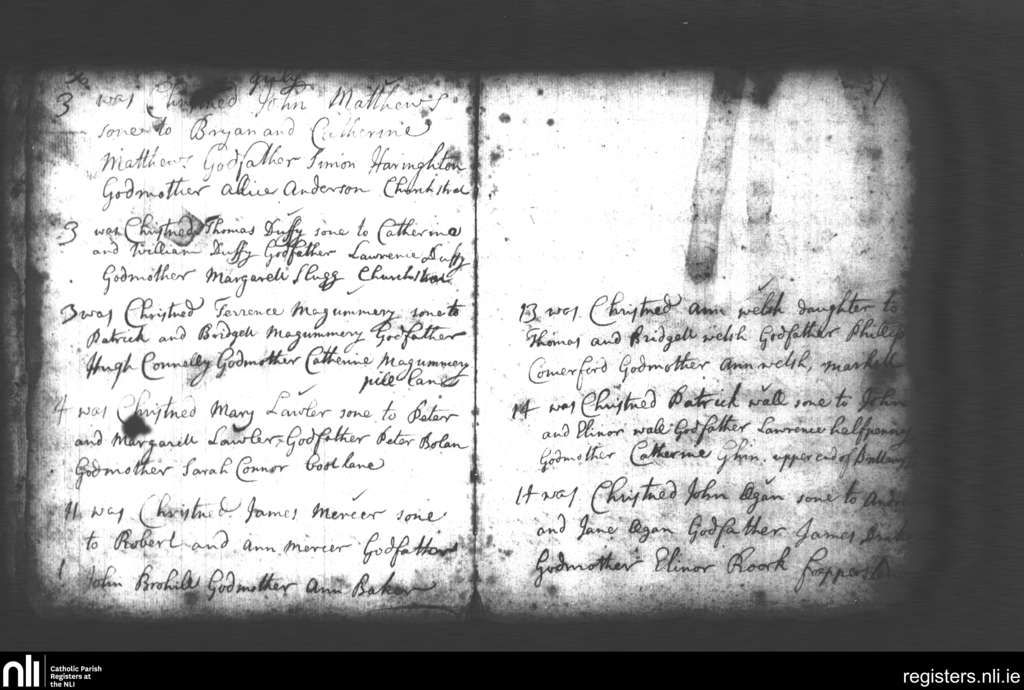 36
July
3 was Christned John Matthews
sone to Bryan and Catherine
Matthews Godfather Simon Haringhton
Godmother Alice Anderson Church stret
3 was Christned Thomas Duffy sone to Catherine
and William Duffy Godfather Lawrence Duffy
Godmother Margarett Slugg Church
3 was Christned Terrence Magummery sone to
Patrick and Bridgett Magummery Godfather
Hugh Connally Godmother Catherine Magummery
pill Lane
4 was Christned Mary Lawler sone to Peter
and Margarett Lawler Godfather Peter Bolan
Godmother Sarah Connor Coot lane
11 was Christned James Mercer sone
to Robert and Ann Mercer Godfather
John Brohill Godmother Ann Baker
37
13 was Christned Ann welsh daughter to
Thomas and Bridgett welsh Godfather Phillip
Comerford Godmother Ann welsh, markett
14 was Christned Patrick wall sone to John
and Elinor wall Godfather Lawrence halfpenny
Godmother Catherine upper end of
14 was Christned John Agan sone to
and Jane Agan Godfather James
Godmother Elinor Roork
nli
Catholic Parish
Registers at
the NLI
registers.nli.ie